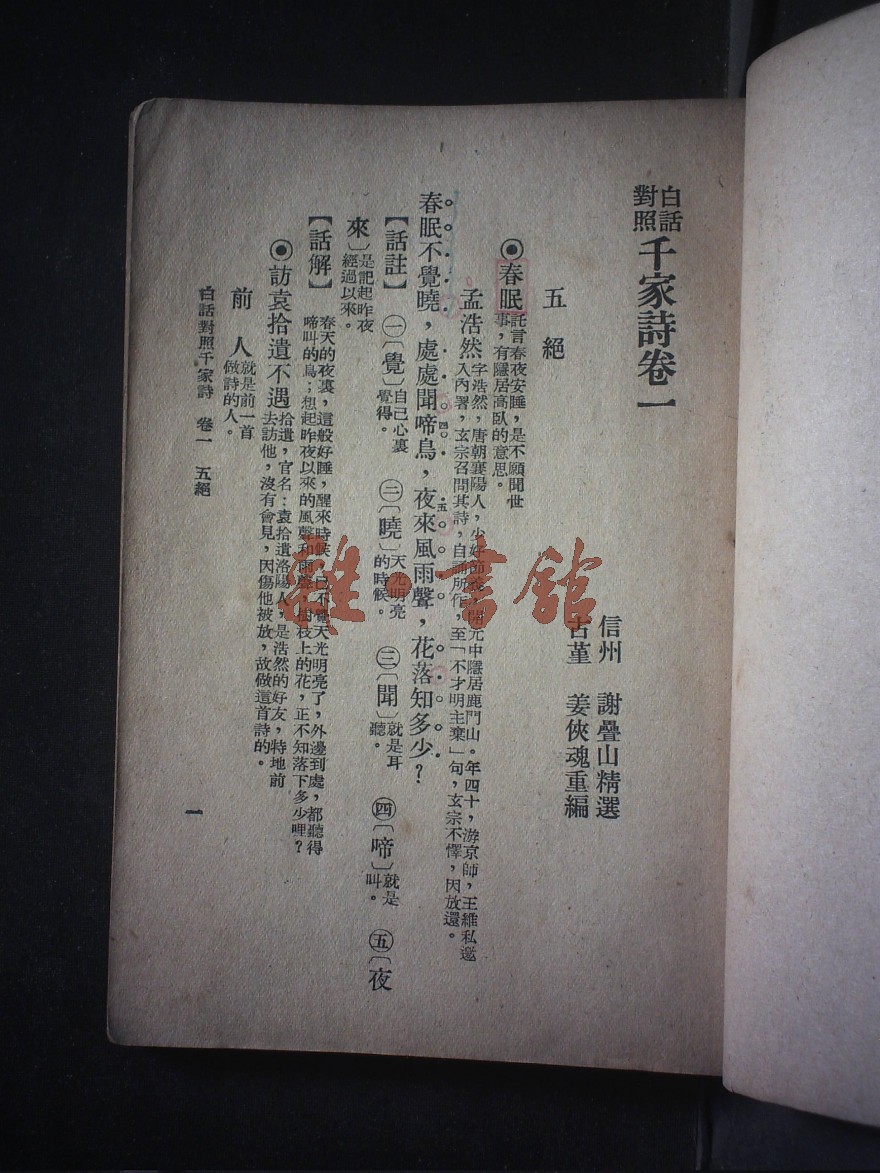 白話對照千家詩卷一
信州　謝疊山精選
古堇　姜俠魂重編
五　絕
◉春眠託言春夜安睡，是不願聞世事，有隱居高臥的意思。
孟浩然字浩然，唐朝襄陽人，少好節義，開元中隱居鹿門山。年四十，游京師，王維私邀入內署，玄宗召問其詩，自誦所作，至「不才明主棄」句，玄宗不懌，因放還。
春眠不覺曉，處處聞啼鳥，夜來風雨聲，花落知多少？
【話註】㊀〔覺〕自己心裏覺得。㊁〔曉〕天光明亮的時候。㊂〔聞〕就是耳聽。㊃〔啼〕就是叫。㊄〔夜
來〕是記起昨夜經過以來。
【話解】春天的夜裏，這般好睡，醒來時候，已不覺天光明亮了，外邊到處，都聽得啼叫的鳥；想起昨夜以來的風聲和雨聲，樹枝上的花，正不知落下多少哩？
◉訪袁拾遺不遇拾遺，官名：袁拾遺洛陽人，是浩然的好友，特地前去訪他，沒有會見，因傷他被放，故做這首詩的。
前　人就是前一首做詩的人。
白話對照千家詩　卷一　五絕
一
雜·書館